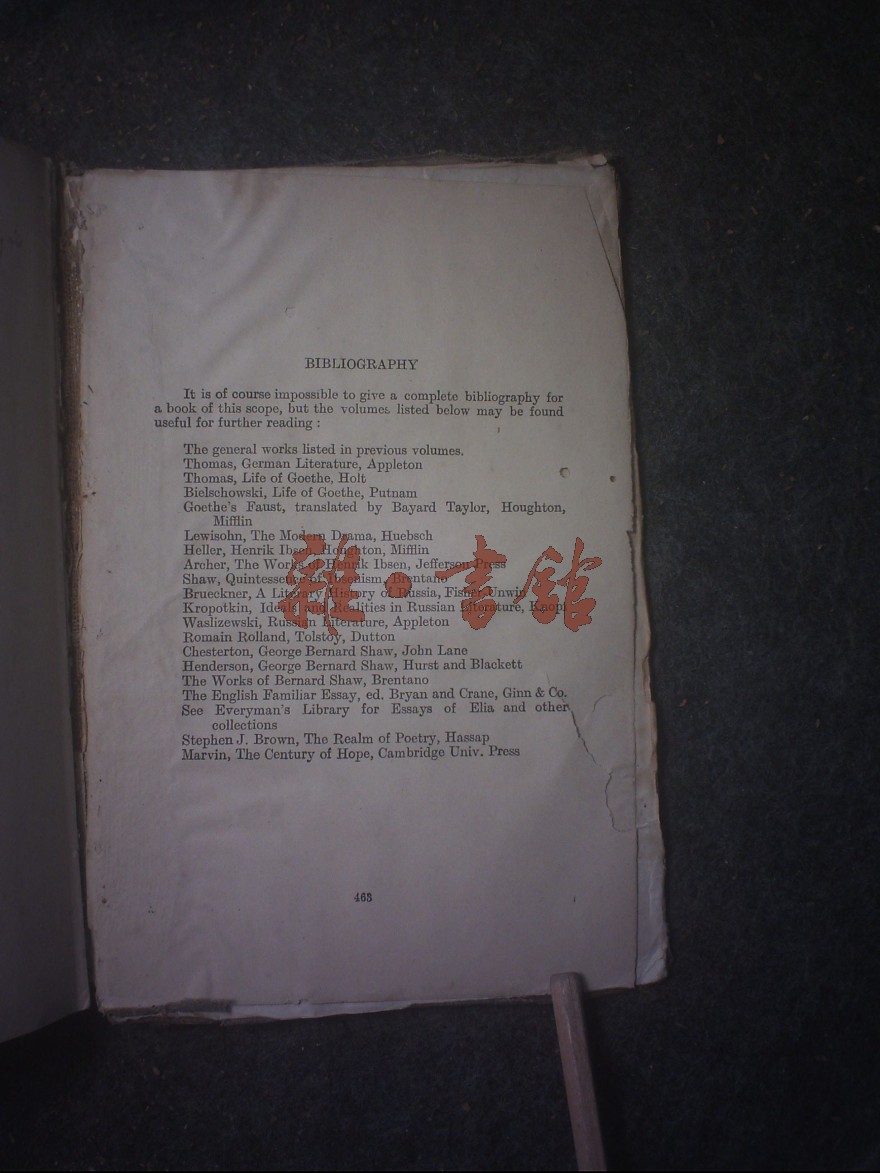 BIBLIOGRAPHY
It is of course impossible to give a complete bibliography for
a book of this scope, but the volumes listed below may be found
useful for further reading :
The general works listed in previous volumes.
Thomas, German Literature, Appleton
Thomas, Life of Goethe, Holt
Bielschowski, Life of Goethe, Putnam
Goethe's Faust, translated by Bayard Taylor, Houghton,
Mifflin
Lewisohn, The Modern Drama, Huebsch
Heller, Henrik Ibsen, Houghton, Mifflin
Archer, The Works of Henrik Ibsen, Jefferson Press
Shaw, Quintessence of Ibsenism, Brentano
Brueckner, A Literary History of Russia, Fisher Unwin
Kropotkin, Ideals and Realities in Russian Literature, Knopf
Waslizewski, Russian Literature, Appleton
Romain Rolland, Tolstoy, Dutton
Chesterton, George Bernard Shaw, John Lane
Henderson, George Bernard Shaw, Hurst and Blackett
The Works of Bernard Shaw, Brentano
The English Familiar Essay, ed. Bryan and Crane, Ginn & Co.
See Everyman's Library for Essays of Elia and other
collections
Stephen J. Brown, The Realm of Poetry, Hassap
Marvin, The Century of Hope, Cambridge Univ. Press
463
雜·書館